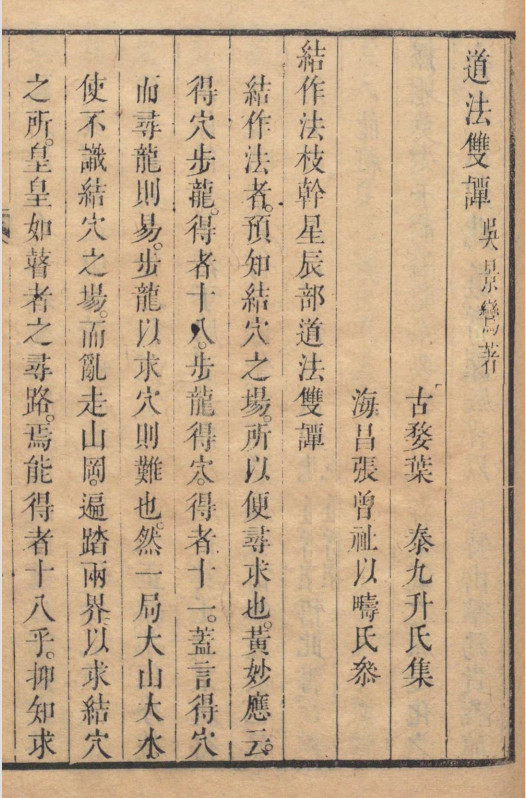 道法雙譚 吳景鸞著
古婺葉　泰九升氏集
海昌張曾祉以疇氏叅
結作法枝幹星辰部道法雙譚
結作法者。預知結穴之場。所以便尋求也。黃妙應云。
得穴步龍。得者十八。步龍得穴。得者十一。蓋言得穴
而尋龍則易。步龍以求穴則難也。然一局大山大水。
使不識結穴之場。而亂走山岡。遍踏兩界。以求結穴
之所。皇皇如瞽者之尋路。焉能得者十八乎。抑知求